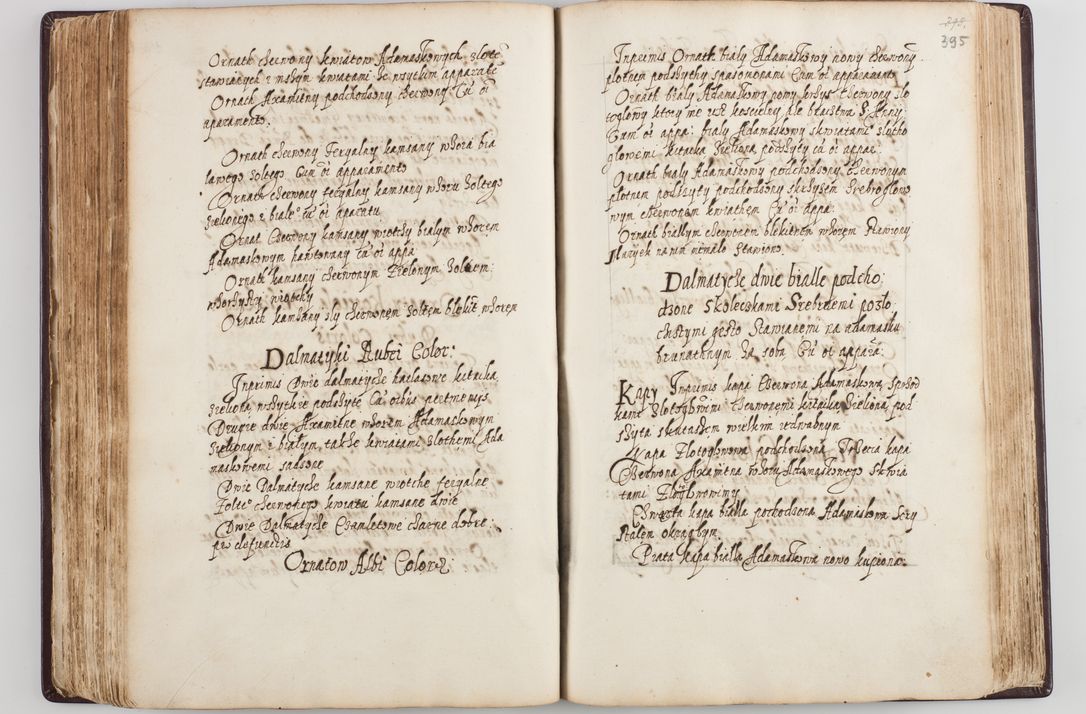 Ornath cherwony kwiatow Adamaskowych zlote
stawianych z nszym kwiatami ze wszytkim apparate
Ornach Axamitny podchodzony cherwony Cu oi
aparamento.
Ornath cherwony feryalny kamsany wzora bia
lawego zoltego Cum oi apparamento
Ornath cherwony feryalny kamsany wzoru zoltego
zielonego z biale cu oi aparatu
Ornat Cherwony kamsany wiotchy bialym wzorem
Adamaskowym hawtowany cu oi appa
Ornath kamsany cherwonym Zielonym zoltem
wiotchy
Ornath kamsany zly cherwonem zoltem blekit wzorem
Dalmatyki Rubei Color:
Inprimis Dwie dalmatyche haclasowe kitaika
zielona wszytkie podszyte Cu oibus pertinens
Drugie dwie Axamitne wzorem Adamaskowym
zielonym i bialym, takze kwiatami zlothemi Ada
maskowemi sadzone
Dwie Dalmatyche kamsane wiotche feryalne
Zolte cherwonego kwiatu kamsane dwie
Dwie Dalmatyche Czamletowe charne dobre
pro defunctis
Ornatow Albi Coloris
395
Inprimis Ornath bialy Adamaskowy nowy cherwony
plotnem podszythy spasamonami Cum oi apparamento
Ornath bialy Adamaskowy nowy krzyz cherwony zlo
toglowy ktory nie iest koscielny ale bractwa S Anny
Cum oi appa: bialy Adamaskowy skwiatami zlotho
glowemi kitaika Zieliona podszyty cu oi appar.
Ornath bialy Adamaskowy podchodzony cherwonym
plotnem podszyty podchodzony skrzyzem Srebroglowo
wym cherwonem kwiathem Cu oi appa:
Ornath biallym cherwonem blekitnem wzorem stawiony
na nim niemalo stawiono
Dalmatyche dwie bialle podcho
dzone skoleczkami Srebrnemi pozlo
cistymi gesto Stawianemi na adamasku
brunathnym za soba Cu oi appara:
Kapy Inprimis kapa Cherwona Adamaskowa, spod
kami zlotoglowimi cherwonemi kitaika Zieliona pod
szyta skutassem wielkim iedwabnym
Kapa Zlotoglowowa podchodzona Trzecia kapa
Cherwona Axamitna wzoru Adamaskowego skwia
tami Zloglowowimy
Czwarta kapa bialla podchodzona Adamaskowa Szcy
stalem okraglym
Piata kapa bialla Adamaskowa nowo kupiona: